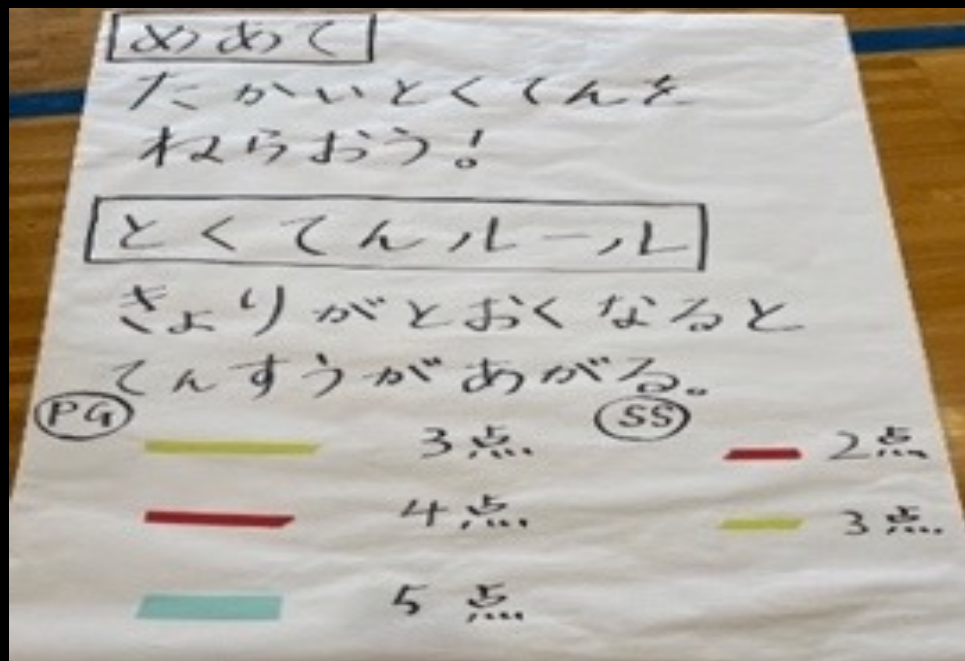 めあて
たかいとくてんを
ねらおう!
とくてんルール
きょりがとおくなると
てんすうがあがる。
PG
SS
3点
2点
4点
3点
5点